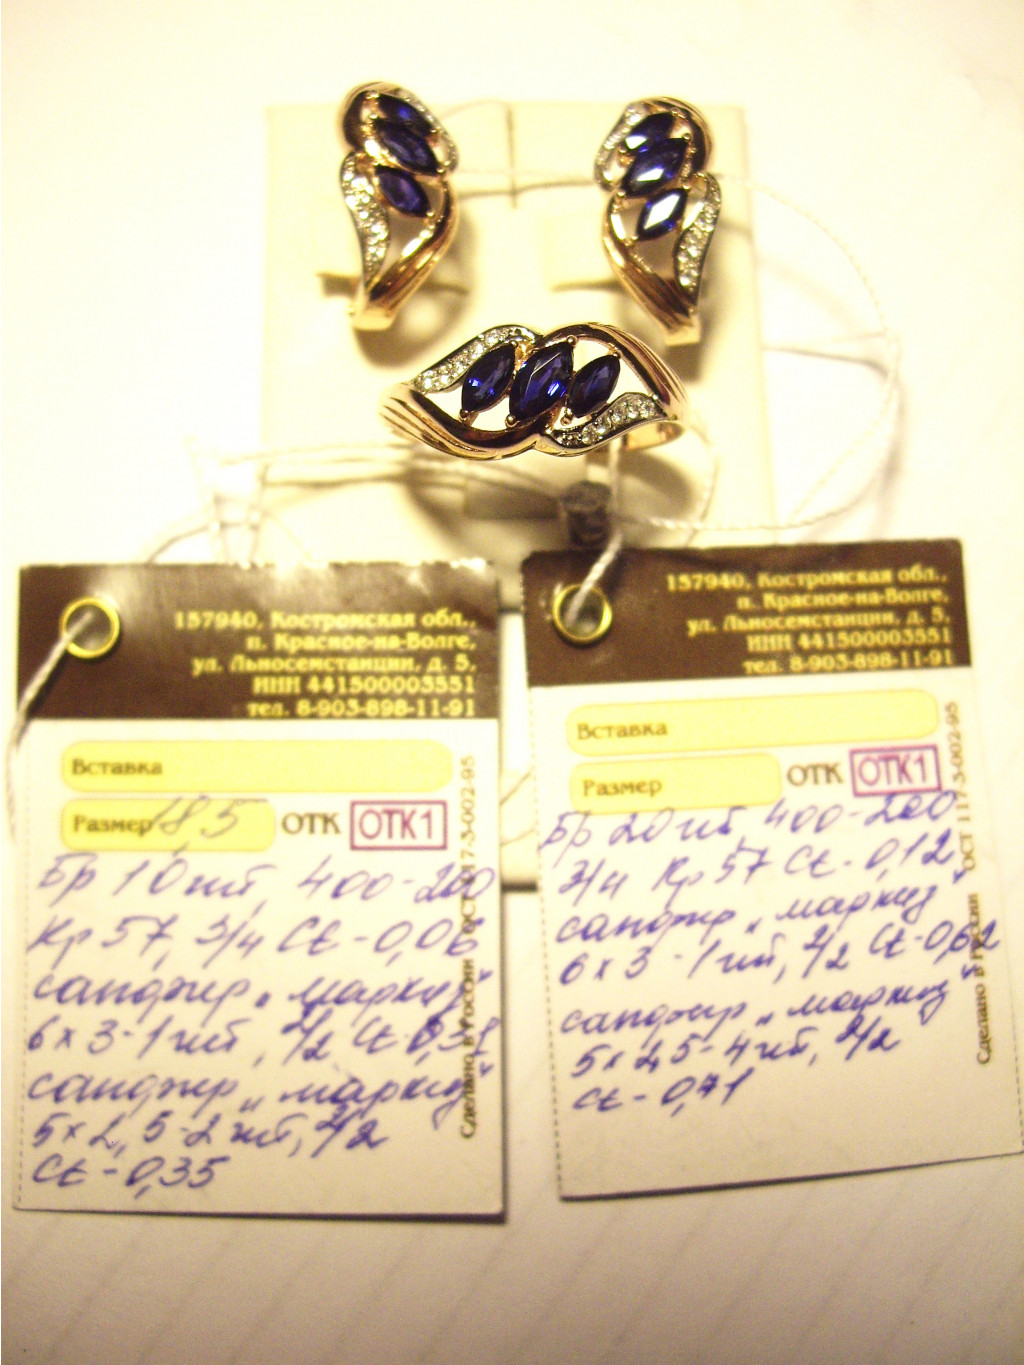 157940, Костромская обл.,
п. Красное-на-Волге,
ул. Льносемстанции, д. 5,
ИНН 441500003551
тел. 8-903-898-11-91
Вставка
Размер 18,5 ОТК ОТК1
Бр 10 шт, 400-200
Кр 57, 3/4 Ct-0,06
сапфир „маркиз"
6х3-1шт, 2/2 Ct-0,31
сапфир „маркиз"
5х2,5-2шт, 2/2
Ct-0,35
Сделано в России ОСТ 117-3-002-95
157940, Костромская обл.,
п. Красное-на-Волге,
ул. Льносемстанции, д. 5,
ИНН 441500003551
тел. 8-903-898-11-91
Вставка
Размер ОТК ОТК1
Бр 20 шт, 400-200
3/4 Кр 57 Ct-0,12
сапфир „маркиз"
6х3-1шт, 2/2 Ct-0,62
сапфир „маркиз"
5х2,5-4шт, 2/2
ct-0,71
Сделано в России ОСТ 117-3-002-95